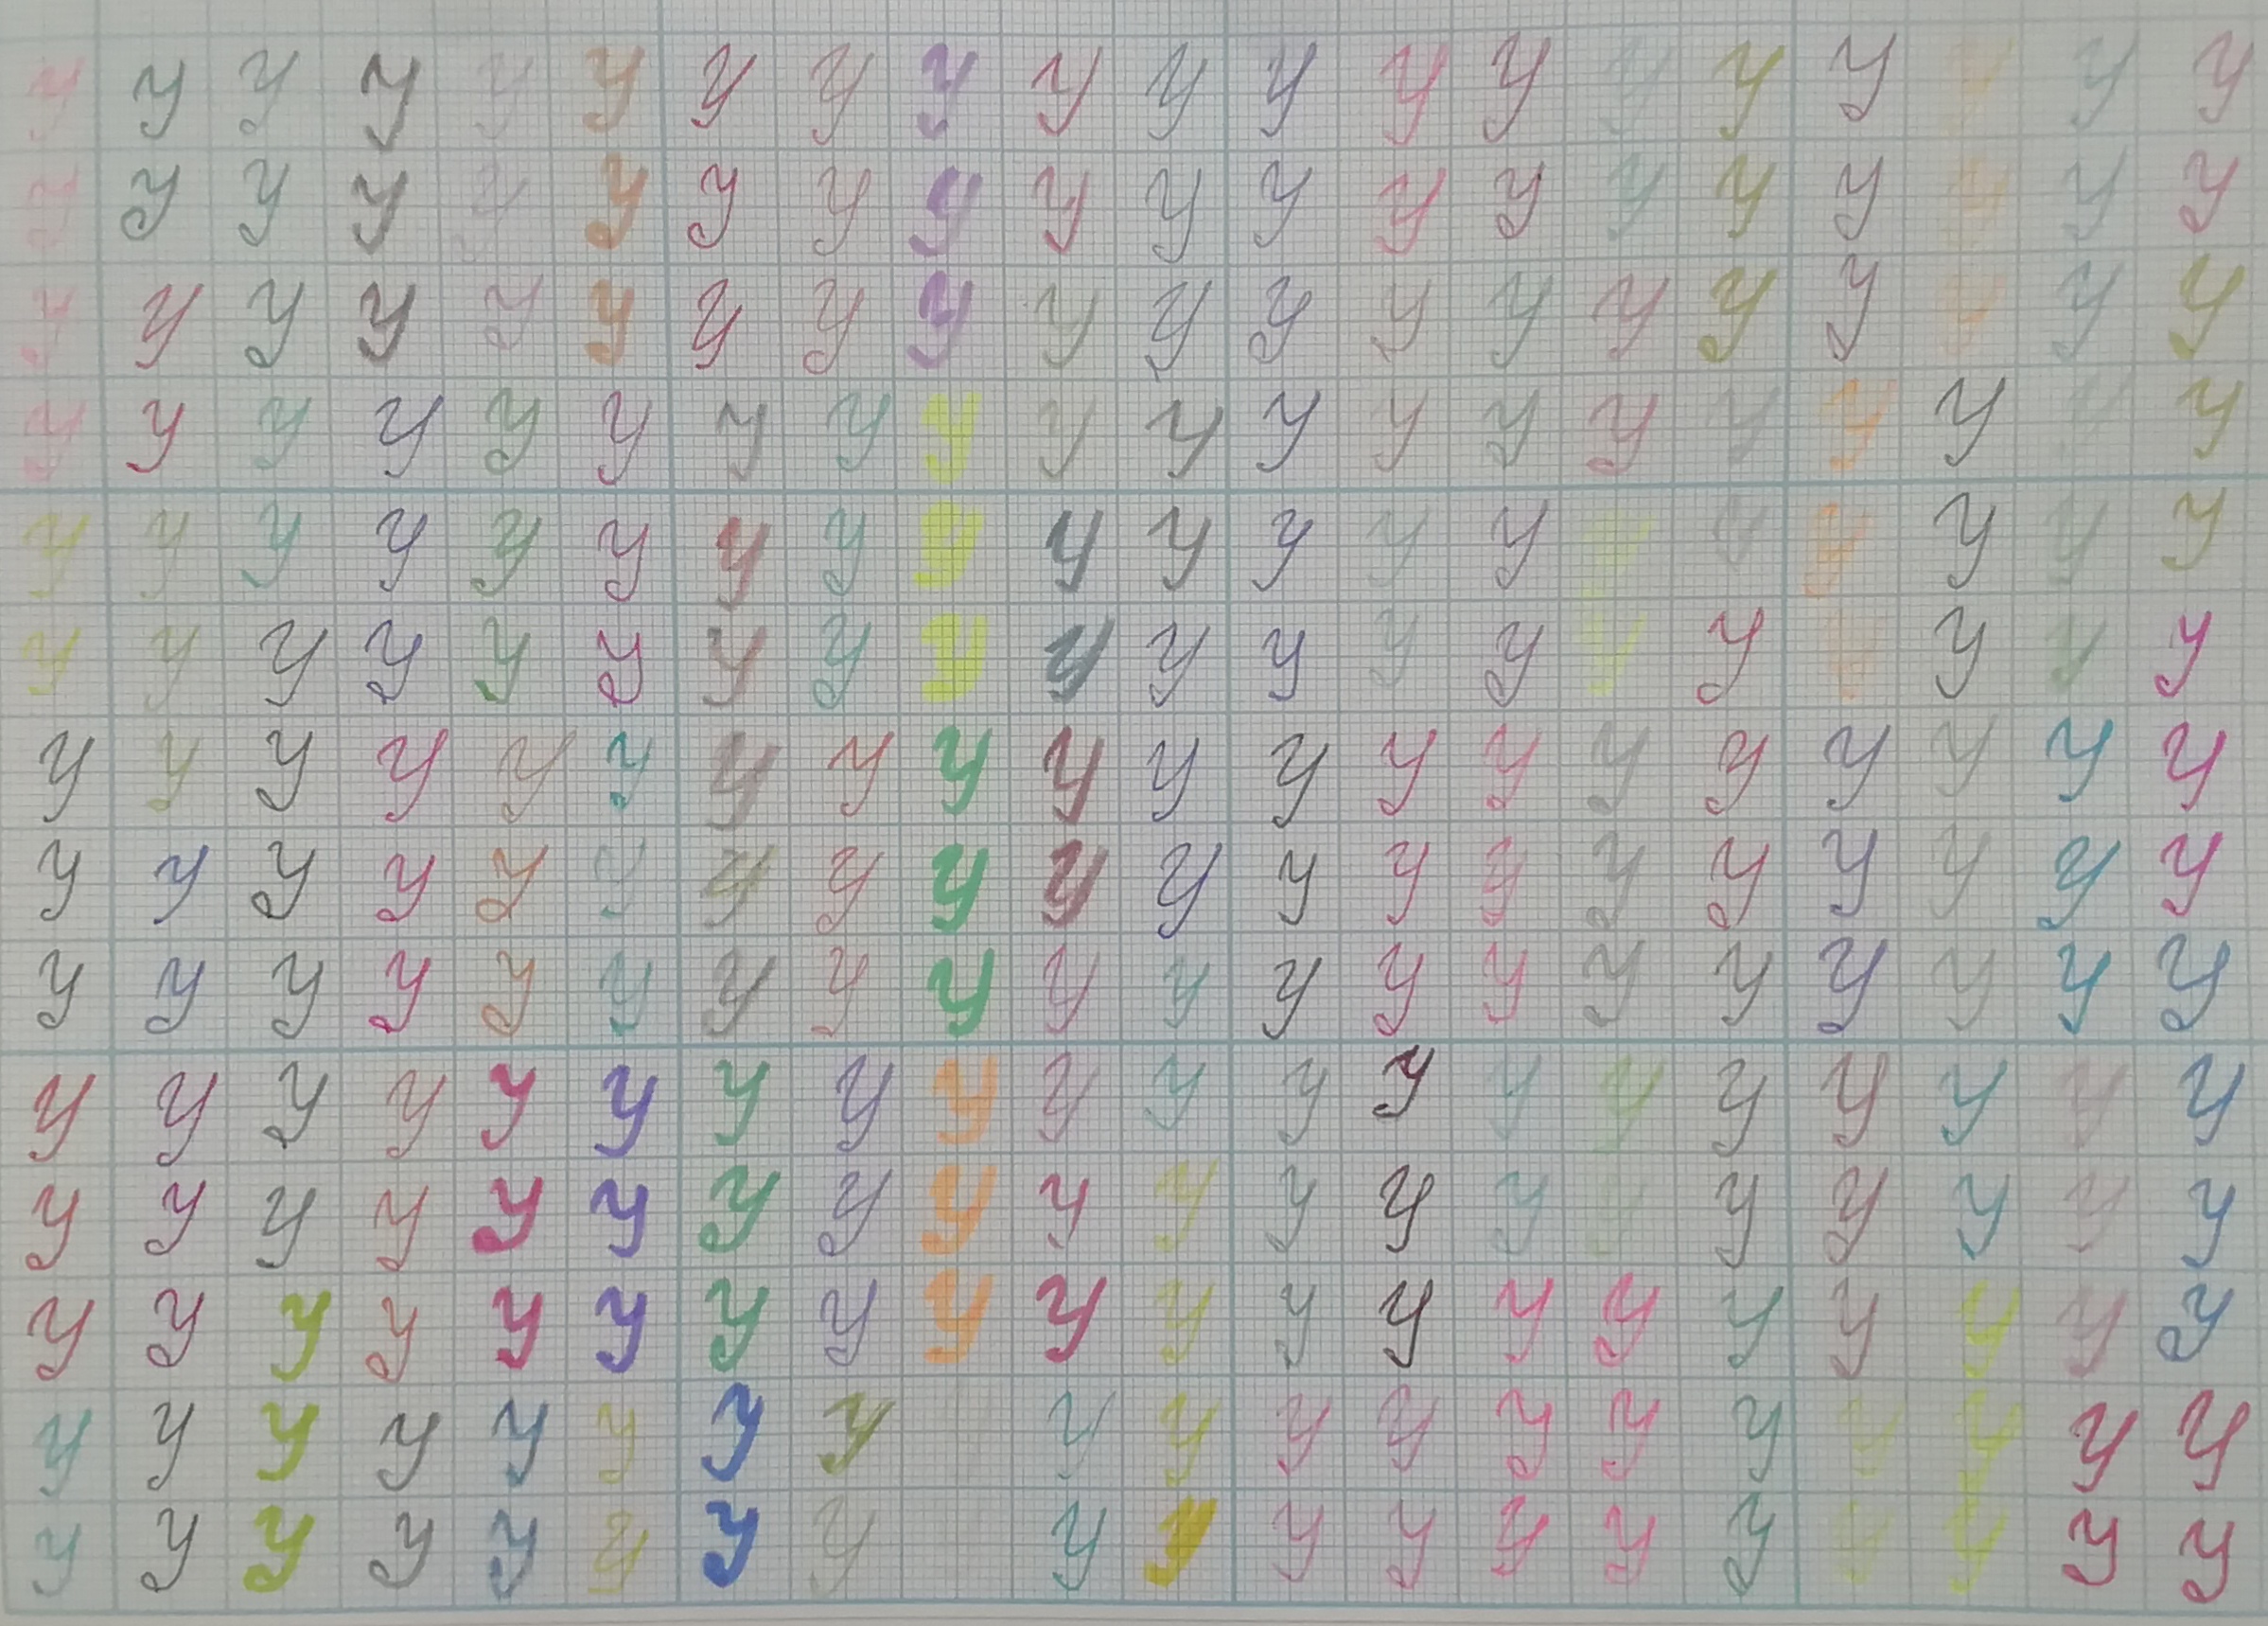 y y y y y y y y y y y y y y y y y y y y
y y y y y y y y y y y y y y y y y y y y
y y y y y y y y y y y y y y y y y y y y
y y y y y y y y y y y y y y y y y y y y
y y y y y y y y y y y y y y y y y y y y
y y y y y y y y y y y y y y y y y y y y
y y y y y y y y y y y y y y y y y y y y
y y y y y y y y y y y y y y y y y y y y
y y y y y y y y y y y y y y y y y y y y
y y y y y y y y y y y y y y y y y y y y
y y y y y y y y y y y y y y y y y y y y
y y y y y y y y y y y y y y y y y y y y
y y y y y y y y y y y y y y y y y y y
y y y y y y y y y y y y y y y y y y y